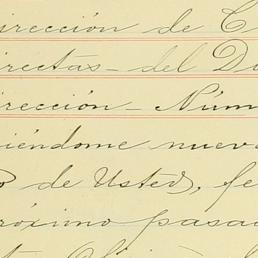 irección de C
irectas - del Du
irección - Núm
iéndome nueva
o de Usted, fe
róximo pasad